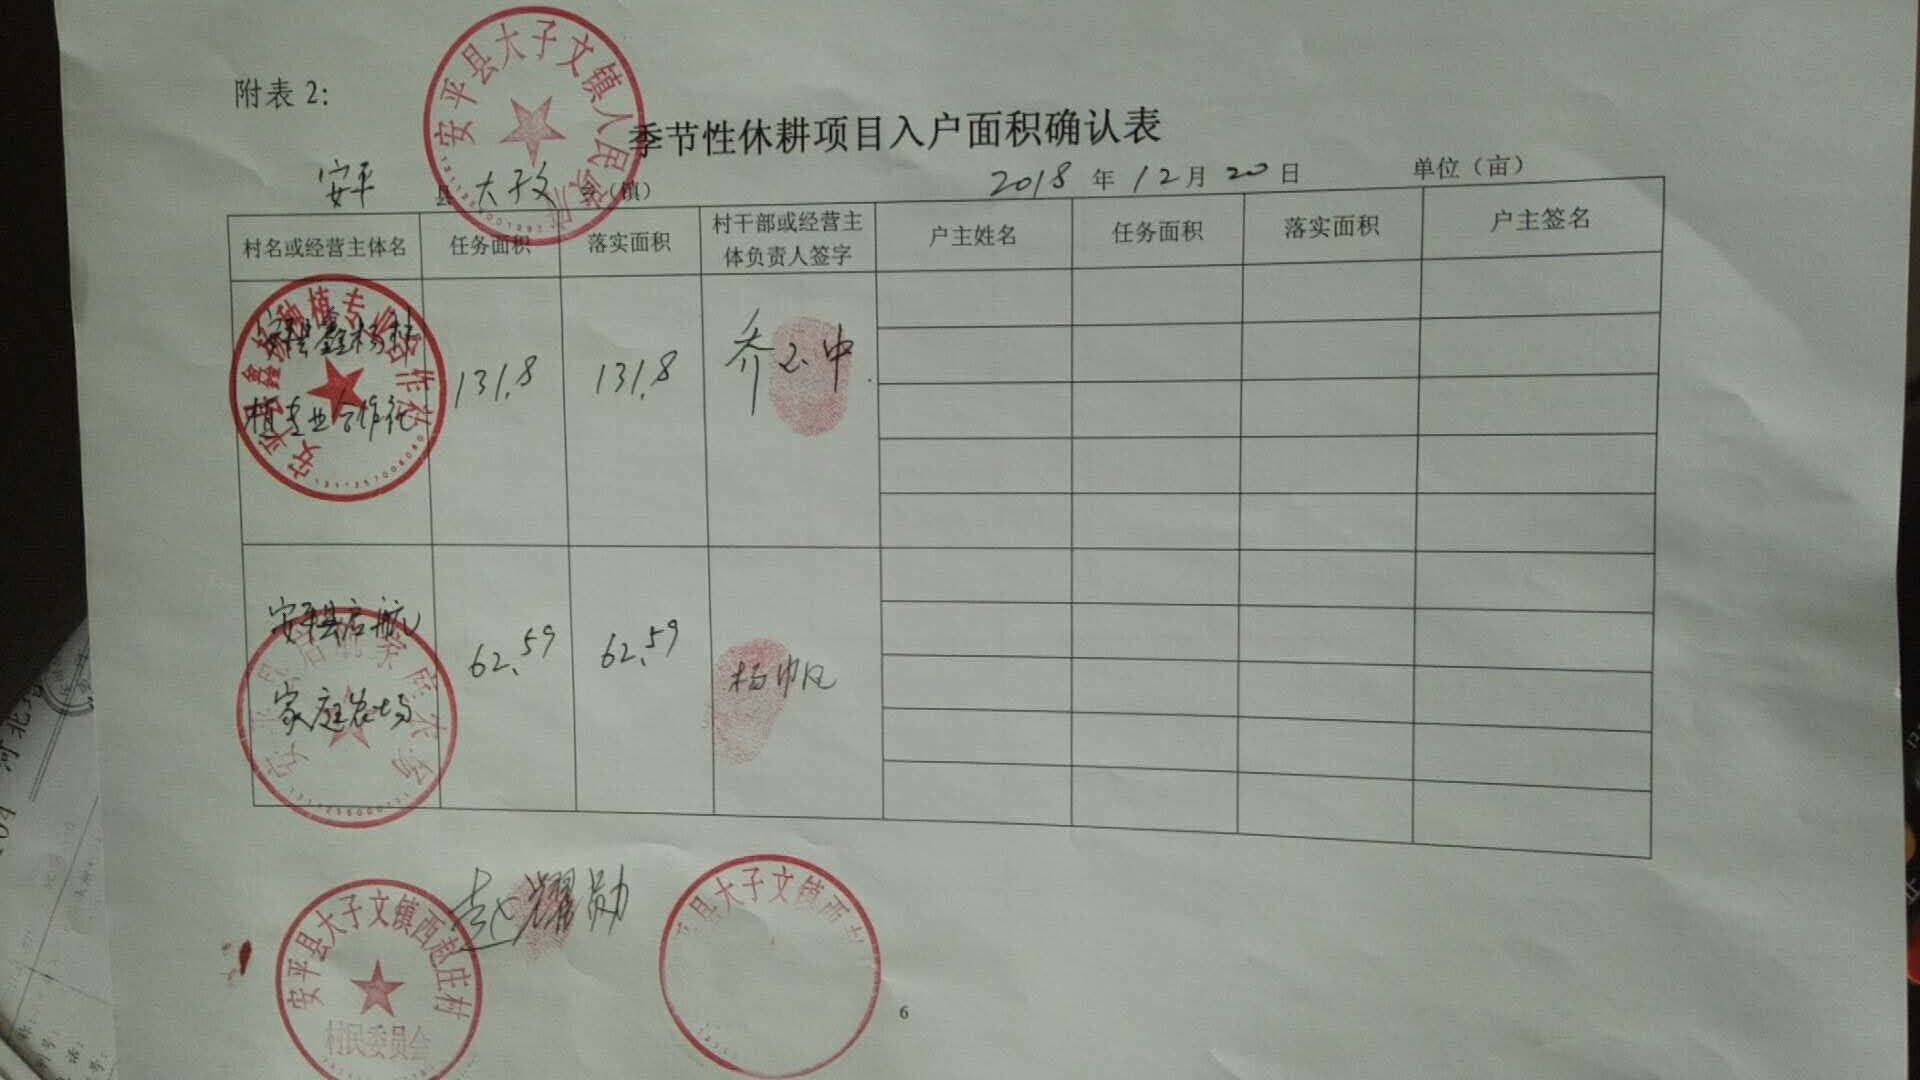 附表 2:
安平县大子文镇人民政府
季节性休耕项目入户面积确认表
安平 县 大子文 乡（镇） 2018 年 12 月 20 日 单位（亩）
村名或经营主体名 任务面积 落实面积 村干部或经营主体负责人签字 户主姓名 任务面积 落实面积 户主签名
安平县鑫杨种植专业合作社 131.8 131.8 乔 中
安平县启航家庭农场 62.59 62.59 杨帆
赵耀勋
安平县大子文镇西赵庄村
村民委员会
县大子文镇西
6